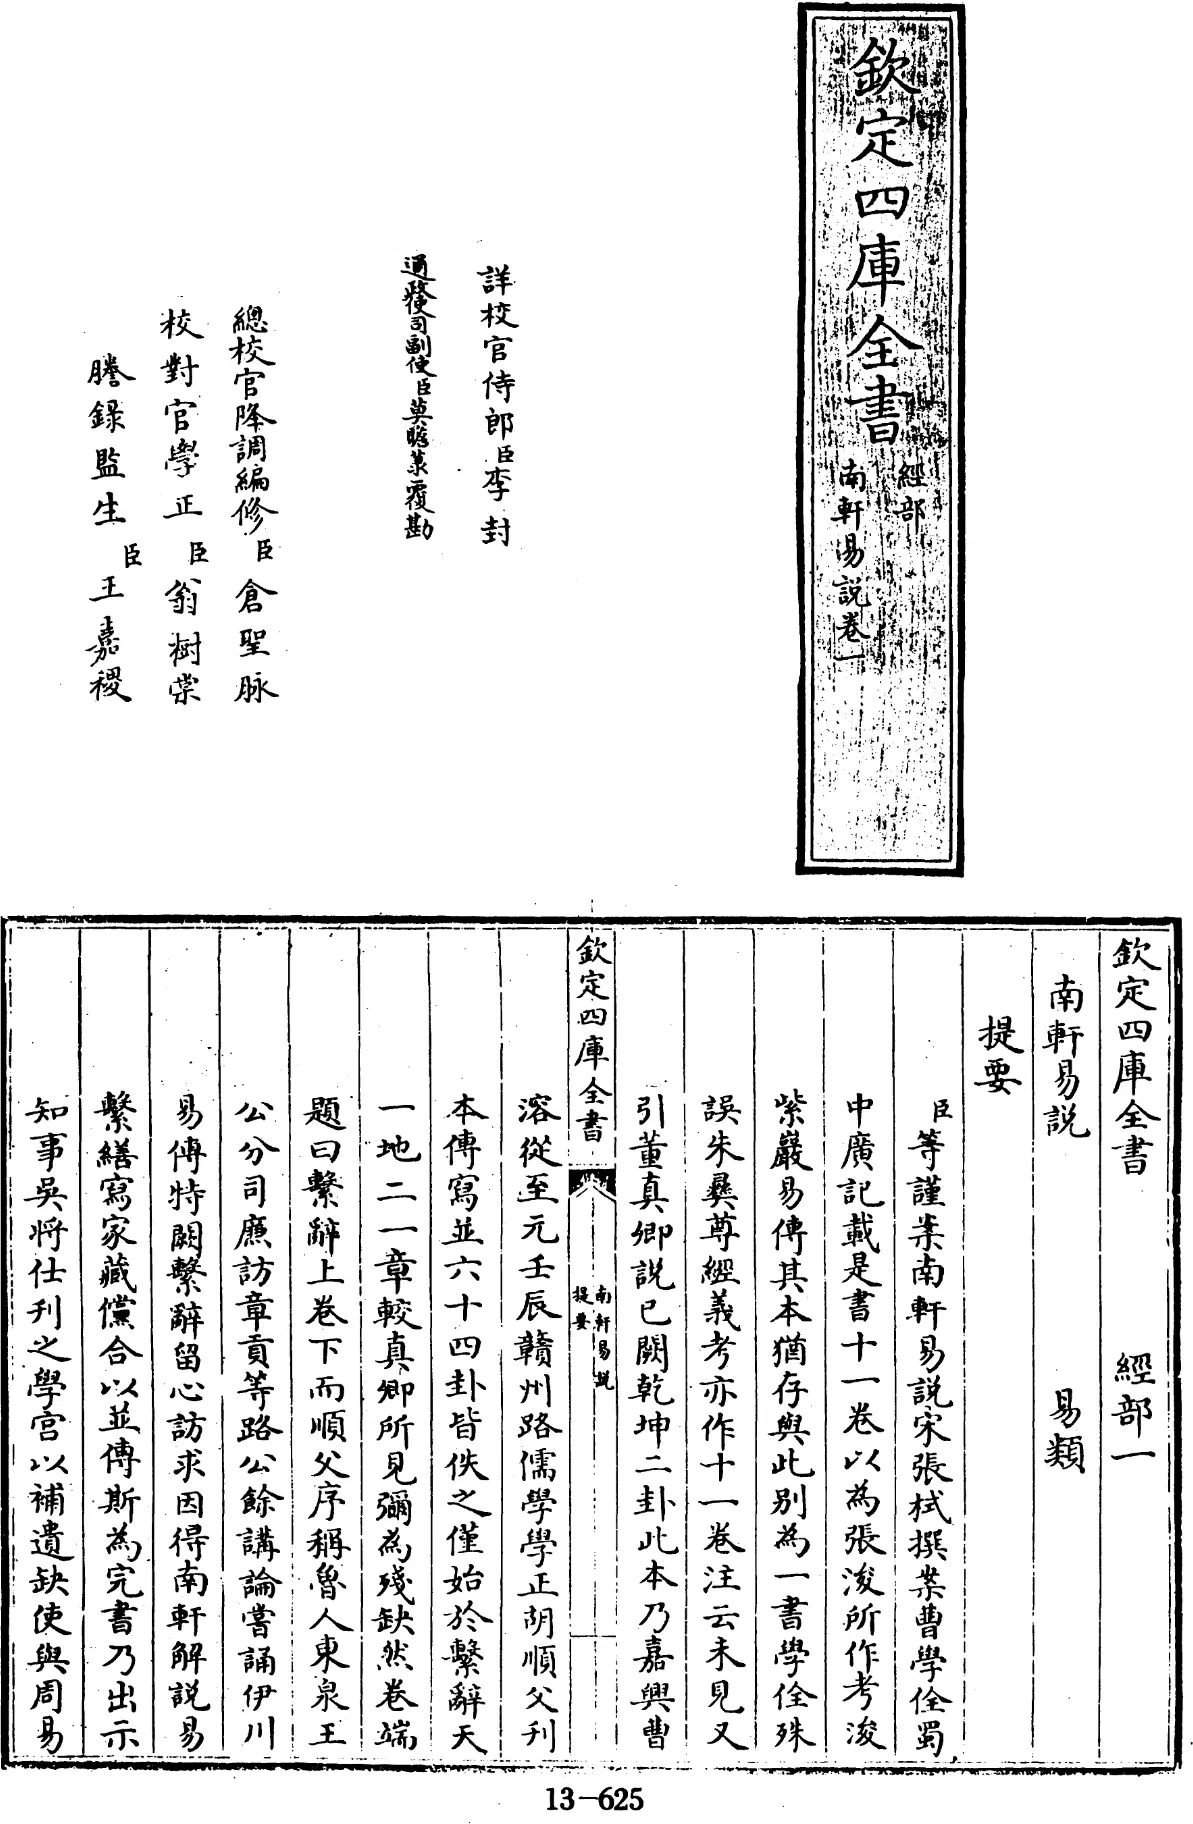 欽定四庫全書
經部
南軒易説卷一
詳校官侍郎臣李封
通政使司副使臣莫瞻菉覆勘
總校官降調編修臣倉聖脉
校對官學正臣翁樹棠
謄錄監生臣王嘉稷
欽定四庫全書 經部一
南軒易説 易類
提要
臣等謹案南軒易説宋張栻撰案曹學佺蜀
中廣記載是書十一卷以為張浚所作考浚
紫巖易傳其本猶存與此别為一書學佺殊
誤朱彞尊經義考亦作十一卷注云未見又
引董真卿説已闕乾坤二卦此本乃嘉興曹
欽定四庫全書
南軒易説
提要
溶從至元壬辰贛州路儒學學正胡順父刋
本傳寫並六十四卦皆佚之僅始於繫辭天
一地二一章較真卿所見彌為殘缺然卷端
題曰繫辭上卷下而順父序稱魯人東泉王
公分司廉訪章貢等路公餘講論嘗誦伊川
易傳特闕繫辭留心訪求因得南軒解説易
繫繕寫家藏儻合以並傳斯為完書乃出示
知事吳將仕刋之學宫以補遺缺使與周易
13-625